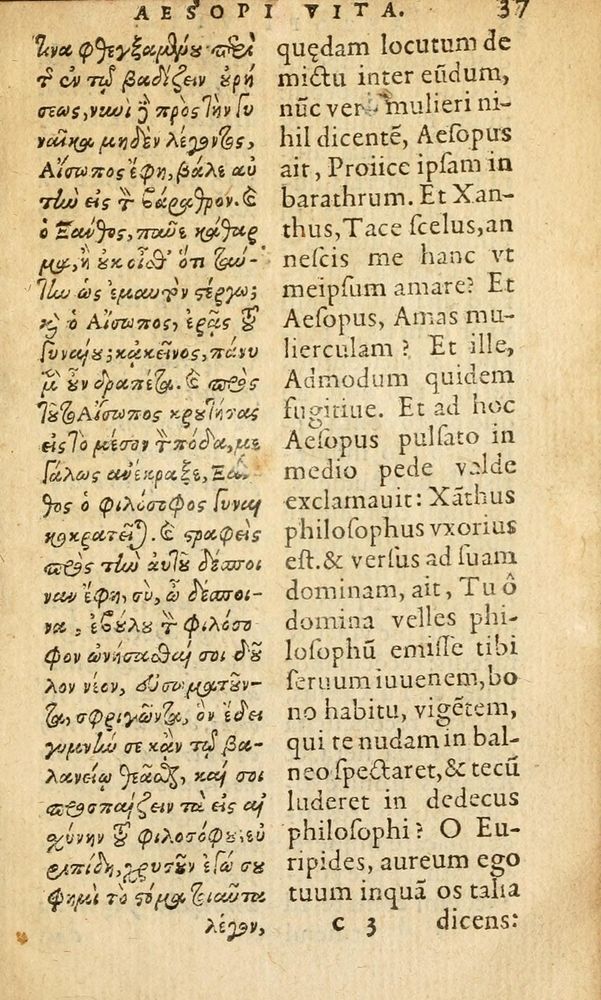 AESOPI VITA. 37
κινα φθεγξαμένου περὶ
τ ἐν τῷ βαδίζειν οὐρή
σεως, νυνὶ ἢ πρὸς τὴν γυ
ναῖκα μηδὲν λέγοντος,
Αἴσωπος ἔφη, βάλε αὐ
τὴν εἰς τὸ βάραθρον. καὶ
ὁ Ξάνθος, παῦε κάθαρ
μα, ἢ οὐκ οἶσθ' ὅτι ταύ-
την ὡς ἐμαυτὸν στέργω;
καὶ ὁ Αἴσωπος, ἐρᾷς τοῦ
γυναίου; κἀκεῖνος, πάνυ
μὲν οὖν δραπέτα. καὶ πρὸς
τοῦτο Αἴσωπος κρουτήσας
εἰς τὸ μέσον τὸν πόδα, με
γάλως ἀνέκραξε, Ξάν
θος ὁ φιλόσοφος γυναι
κοκρατεῖται. καὶ στραφεὶς
πρὸς τὴν αὐτοῦ δέσποι
ναν ἔφη, σὺ, ὦ δέσποι-
να, ἐβούλου τὸν φιλόσο
φον ὠνήσασθαί σοι δοῦ
λον νέον, εὐσωματοῦν-
τα, σφριγῶντα, ὃν ἔδει
γυμνήν σε κἀν τῷ βα-
λανείῳ θεᾶσθαι, καί σοι
προσπαίζειν τὰ εἰς αἰ
σχύνην τοῦ φιλοσόφου; εὐ
ριπίδη, χρυσοῦν ἐγώ σου
φημὶ τὸ στόμα τοιαῦτα
λέγον,
quędam locutum de
mictu inter eūdum,
nūc vero mulieri ni-
hil dicentē, Aesopus
ait, Proiice ipsam in
barathrum. Et Xan-
thus, Tace scelus, an
nescis me hanc vt
meipsum amare? Et
Aesopus, Amas mu-
lierculam? Et ille,
Admodum quidem
fugitiue. Et ad hoc
Aesopus pulsato in
medio pede valde
exclamauit: Xāthus
philosophus vxorius
est. & versus ad suam
dominam, ait, Tu ô
domina velles phi-
losophū emisse tibi
seruum iuuenem, bo
no habitu, vigētem,
qui te nudam in bal-
neo spectaret, & tecū
luderet in dedecus
philosophi? O Eu-
ripides, aureum ego
tuum inquā os talia
c 3 dicens: